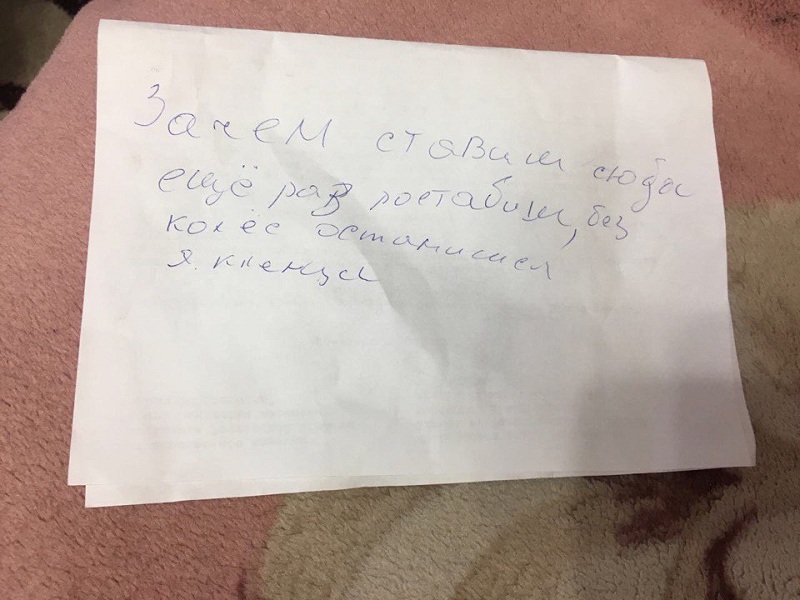 Зачем ставиш сюда
ещё раз поставиш, без
колёс останишся
я. клянусь